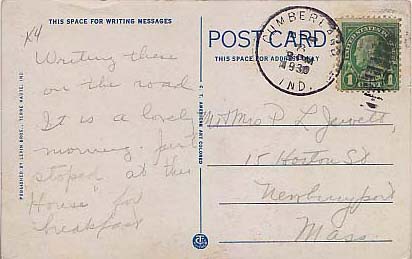 THIS SPACE FOR WRITING MESSAGES
X4
Writing these
on the road
It is a lovely
morning. Just
stoped at this
"House" for
breakfast
PUBLISHED BY LEVIN BROS., TERRE HAUTE, IND.
C. T. AMERICAN ART COLORED
POST CARD
THIS SPACE FOR ADDRESS ONLY
CUMBERLAND
1930
IND.
1 1
Mr & Mrs P L Jewett,
15 Boston St
Newburyport
Mass